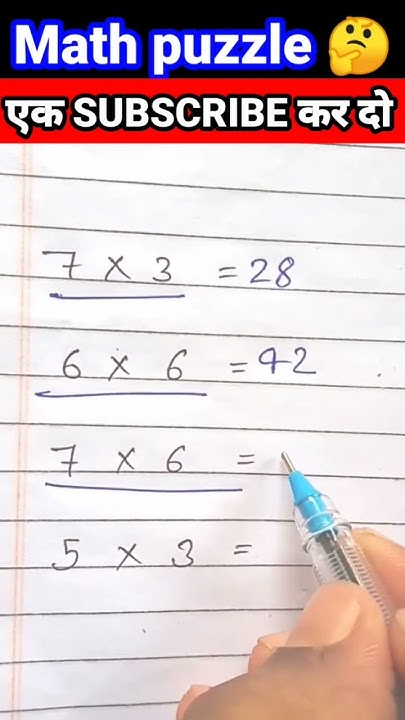 Math puzzle 🤔
एक SUBSCRIBE कर दो
7 x 3 = 28
6 x 6 = 42
7 x 6 =
5 x 3 =